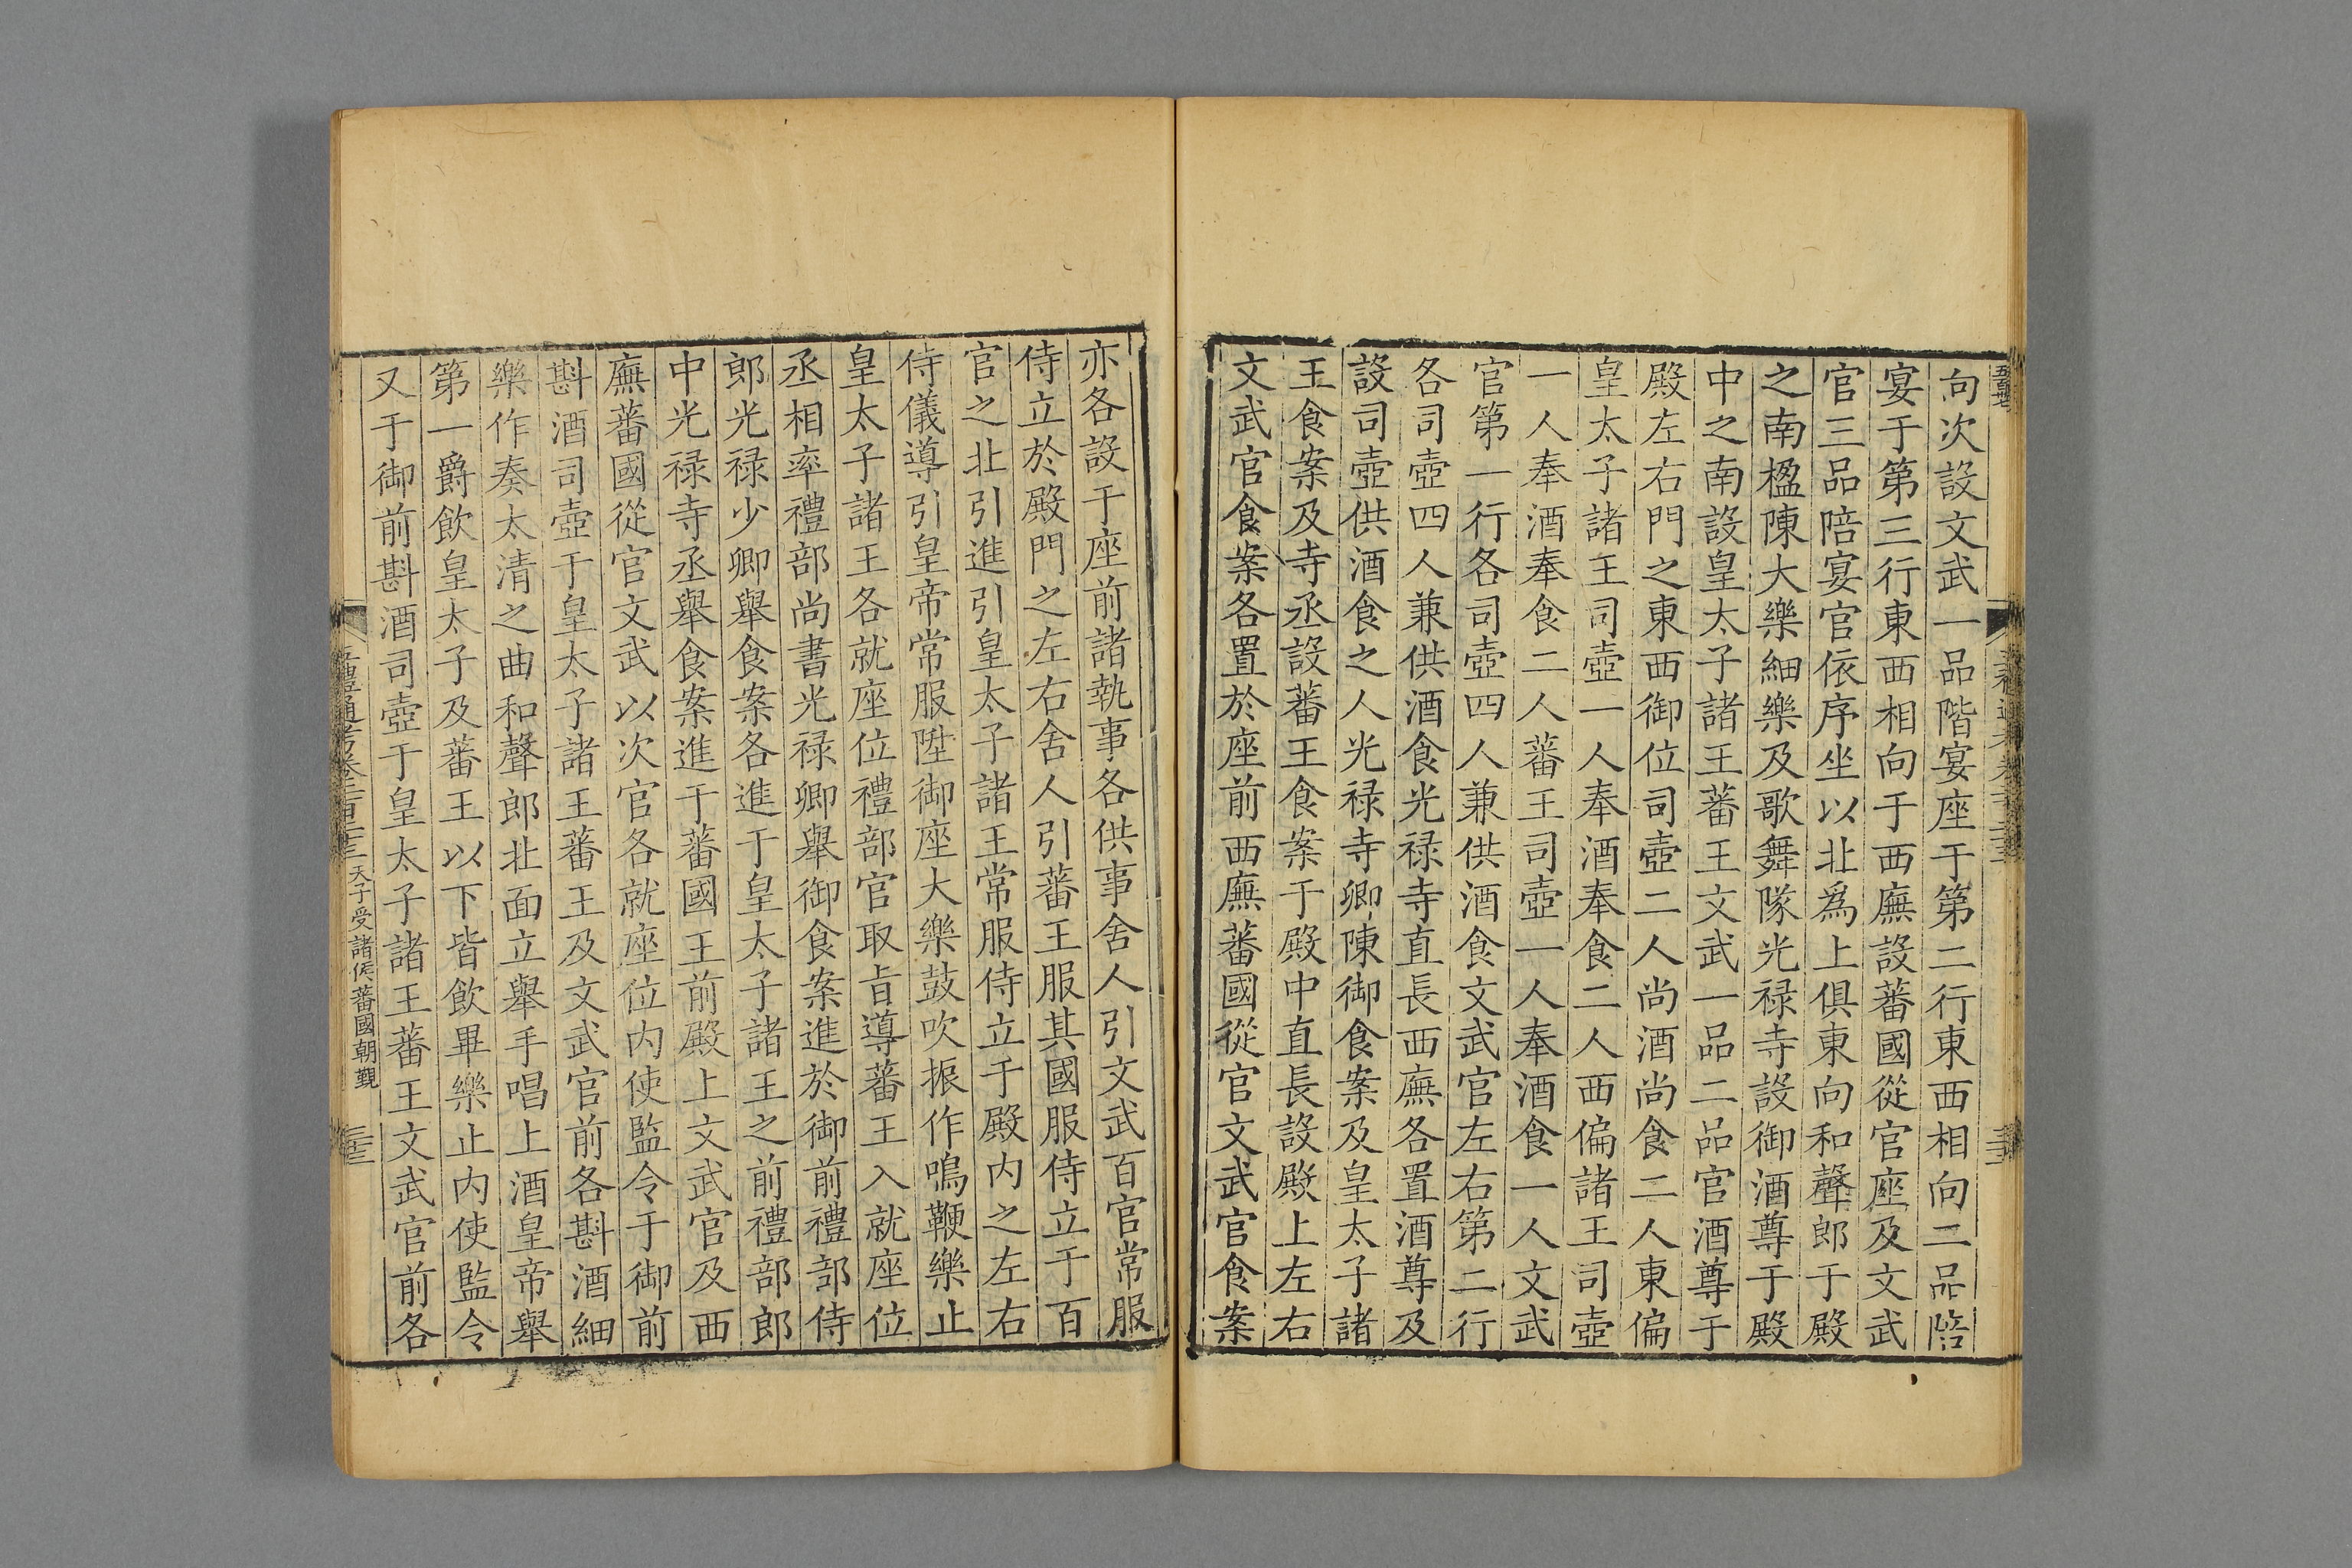 向次設文武一品階宴座于第二行東西相向二品陪
宴于第三行東西相向于西廡設蕃國從官座及文武
官三品陪宴官依序坐以北爲上俱東向和聲郎于殿
之南楹陳大樂細樂及歌舞隊光禄寺設御酒尊于殿
中之南設皇太子諸王蕃王文武一品二品官酒尊于
殿左右門之東西御位司壺二人尚酒尚食二人東偏
皇太子諸王司壺一人奉酒奉食二人西偏諸王司壺
一人奉酒奉食二人蕃王司壺一人奉酒食一人文武
官第一行各司壺四人兼供酒食文武官左右第二行
各司壺四人兼供酒食光禄寺直長西廡各置酒尊及
設司壺供酒食之人光禄寺卿陳御食案及皇太子諸
王食案及寺丞設蕃王食案于殿中直長設殿上左右
文武官食案各置於座前西廡蕃國從官文武官食案
亦各設于座前諸執事各供事舍人引文武百官常服
侍立於殿門之左右舍人引蕃王服其國服侍立于百
官之北引進引皇太子諸王常服侍立于殿内之左右
侍儀導引皇帝常服陞御座大樂鼓吹振作鳴鞭樂止
皇太子諸王各就座位禮部官取旨導蕃王入就座位
丞相率禮部尚書光禄卿舉御食案進於御前禮部侍
郎光禄少卿舉食案各進于皇太子諸王之前禮部郎
中光禄寺丞舉食案進于蕃國王前殿上文武官及西
廡蕃國從官文武以次官各就座位内使監令于御前
斟酒司壺于皇太子諸王蕃王及文武官前各斟酒細
樂作奏太清之曲和聲郎北面立舉手唱上酒皇帝舉
第一爵飲皇太子及蕃王以下皆飲畢樂止内使監令
又于御前斟酒司壺于皇太子諸王蕃王文武官前各
五禮通考卷二百二十三 天子受諸侯蕃國朝覲 三十三